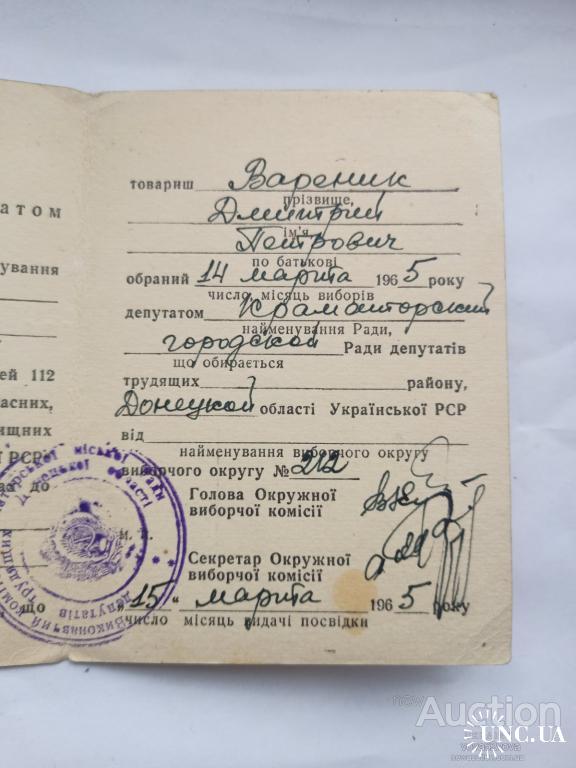 товариш Вареник
прізвище,
Дмитрий
ім'я,
Петрович
по батькові
обраний 14 марта 1965 року
число місяць виборів
депутатом Краматорский
найменування Ради,
городской Ради депутатів
що обирається
трудящих району,
Донецкой області Української РСР
від
найменування виборчого округу
виборчого округу № 212
Голова Окружної
виборчої комісії
Секретар Окружної
виборчої комісії
„15" марта 1965 року
число місяць видачі посвідки
атом
ування
ей 112
асних,
ищних
ї РСР
до
м. п.
що
міської Ради
Донецької області
Виконавчий коміт
депутатів трудящих
Auction
UNC.UA